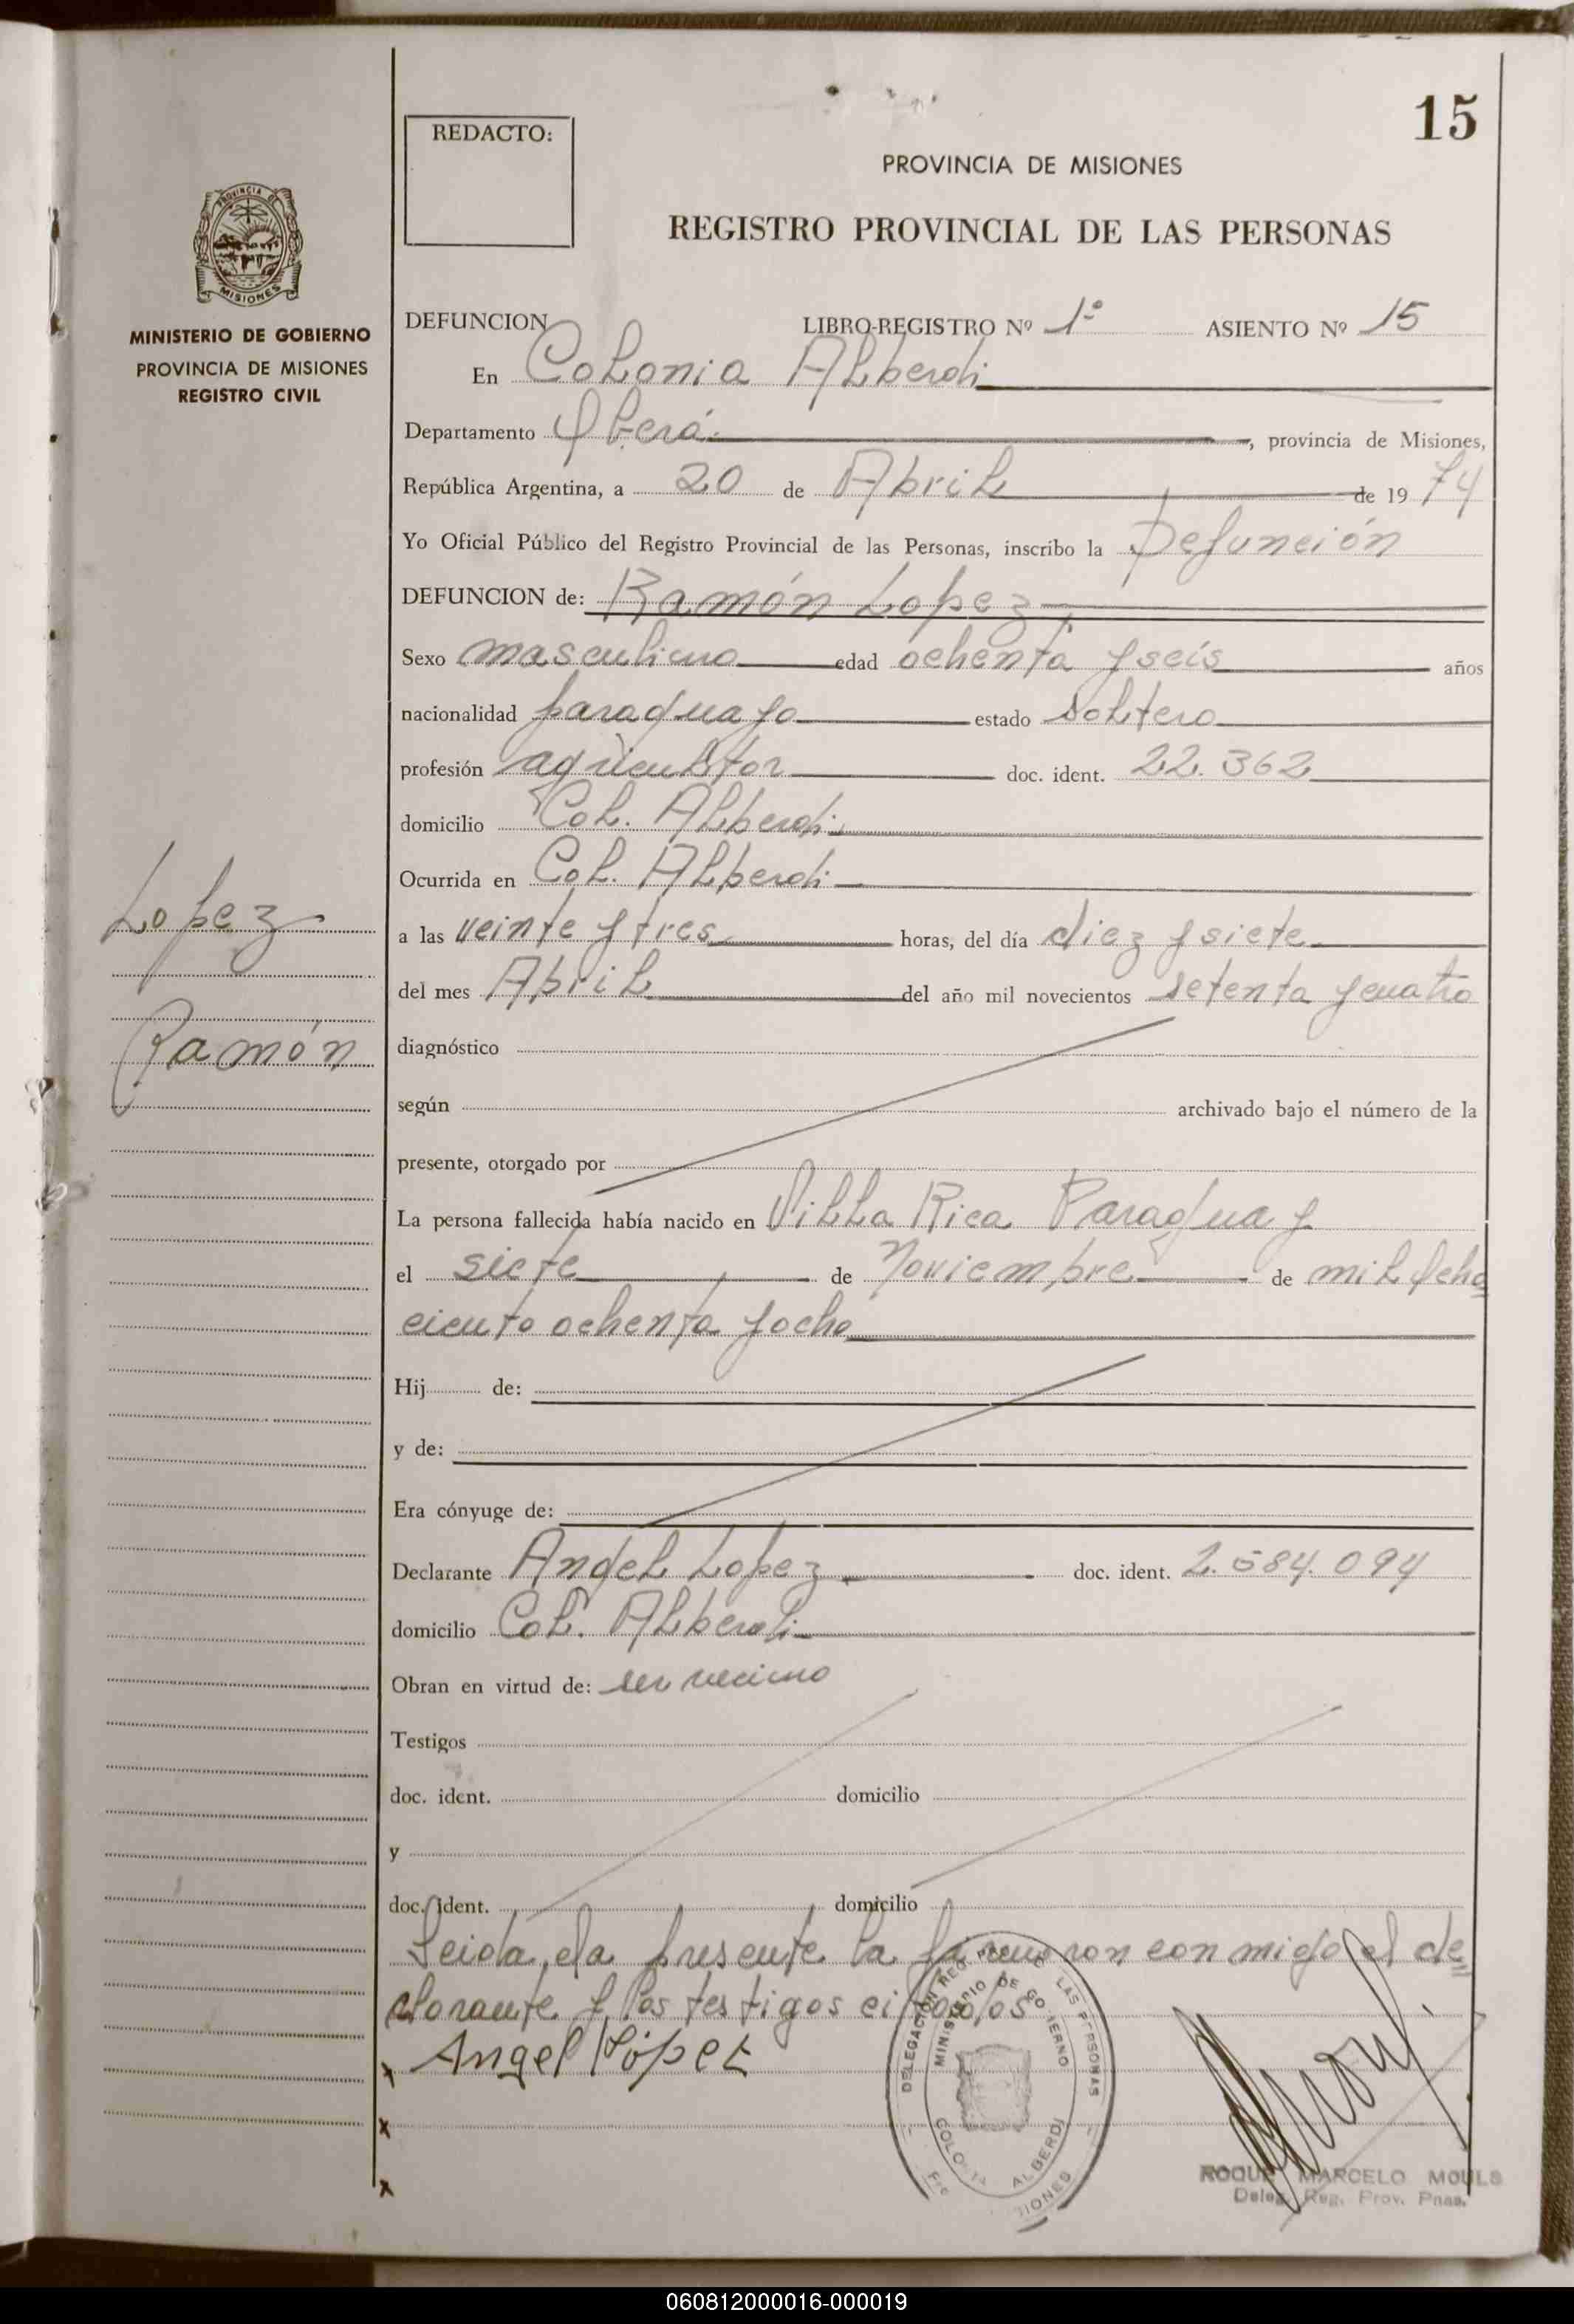 15
REDACTO:
PROVINCIA DE MISIONES
REGISTRO PROVINCIAL DE LAS PERSONAS
PROVINCIA DE
MISIONES
MINISTERIO DE GOBIERNO
PROVINCIA DE MISIONES
REGISTRO CIVIL
DEFUNCION LIBRO-REGISTRO Nº 1º ASIENTO Nº 15
En Colonia Alberdi
Departamento Oberá, provincia de Misiones,
República Argentina, a 20 de Abril de 1974
Yo Oficial Público del Registro Provincial de las Personas, inscribo la Defunción
DEFUNCION de: Ramón Lopez
Sexo masculino edad ochenta y seís años
nacionalidad paraguayo estado soltero
profesión agricultor doc. ident. 22.362
domicilio Col. Alberdi
Ocurrida en Col. Alberdi
Lopez
Ramón
a las veinte y tres horas, del día diez y siete
del mes Abril del año mil novecientos setenta y cuatro
diagnóstico
según archivado bajo el número de la
presente, otorgado por
La persona fallecida había nacido en Villa Rica Paraguay
el siete de Noviembre de mil ocho
ciento ochenta y ocho
Hij de:
y de:
Era cónyuge de:
Declarante Angel Lopez doc. ident. 2.584.094
domicilio Col. Alberdi
Obran en virtud de: ser vecino
Testigos
doc. ident. domicilio
y
doc. ident. domicilio
Leida la presente la firmaron conmigo el de
clarante y los testigos citados
x Angel López
x
x
DELEGACIÓN REG. LAS PERSONAS
MINISTERIO DE GOBIERNO
COLONIA ALBERDI
ROQUE MARCELO MOULS
Deleg. Reg. Prov. Pnas.
060812000016-000019